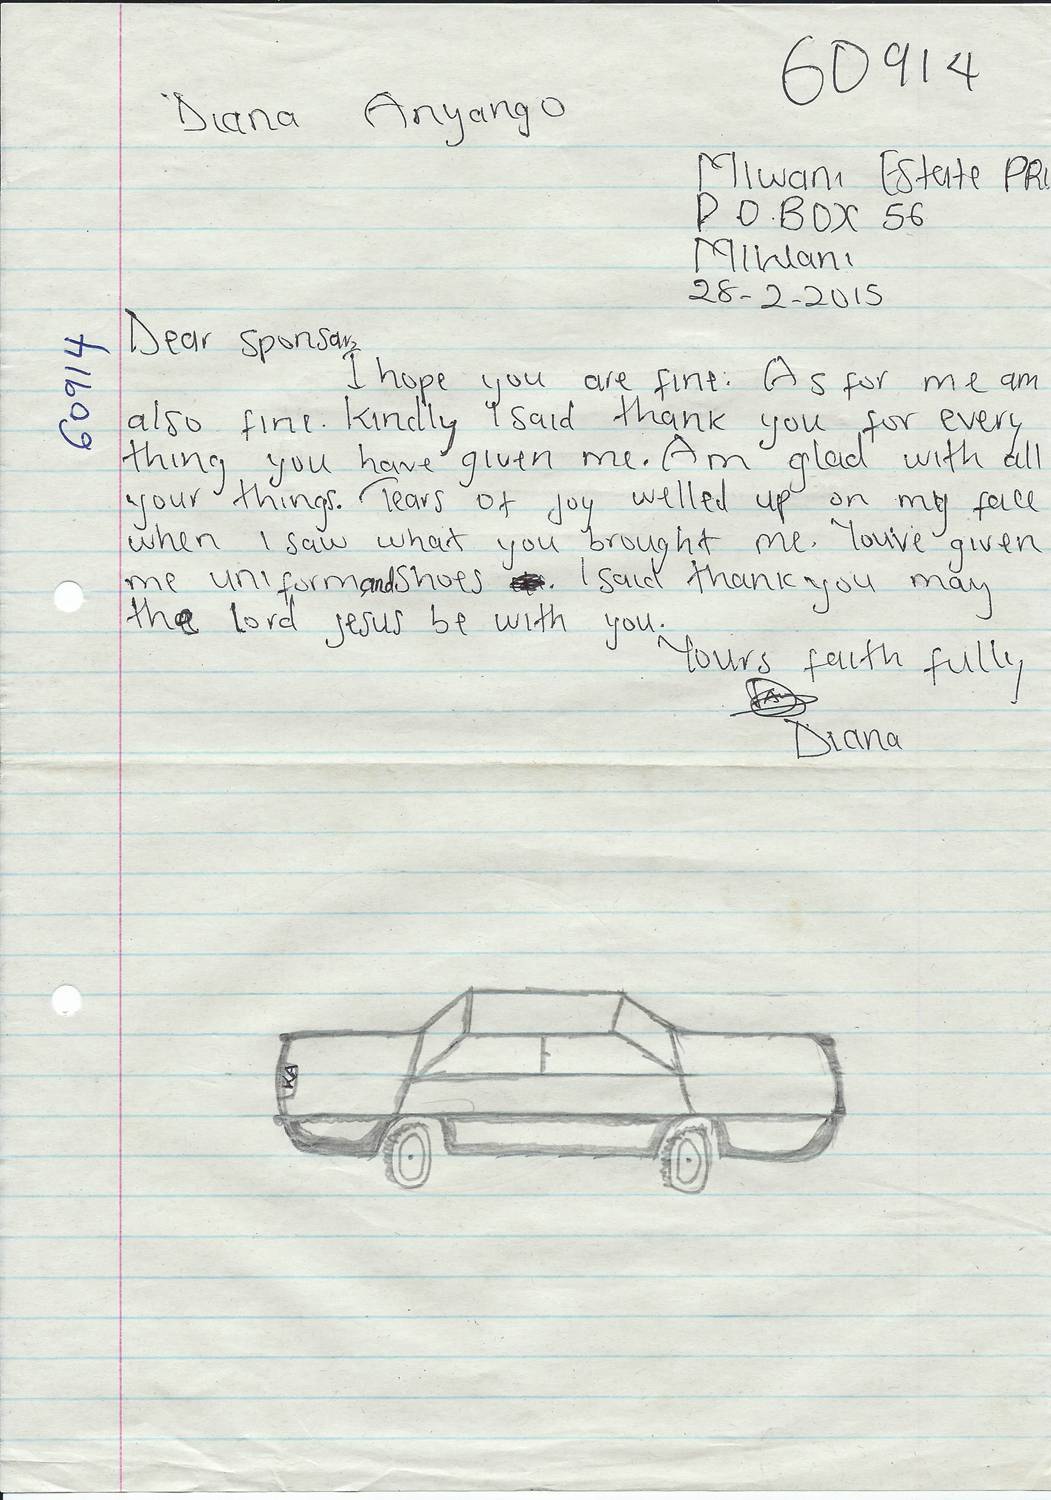 60914
Diana Anyango
Miwani Estate PRI
P O. BOX 56
Miwani
28-2-2015
60914
Dear sponsar,
I hope you are fine. As for me am
also fine. Kindly I said thank you for every
thing you have given me. Am glad with all
your things. Tears of joy welled up on my face
when I saw what you brought me. You've given
me uniform and shoes . I said thank you may
the lord jesus be with you.
Yours faith fully
Diana
KA